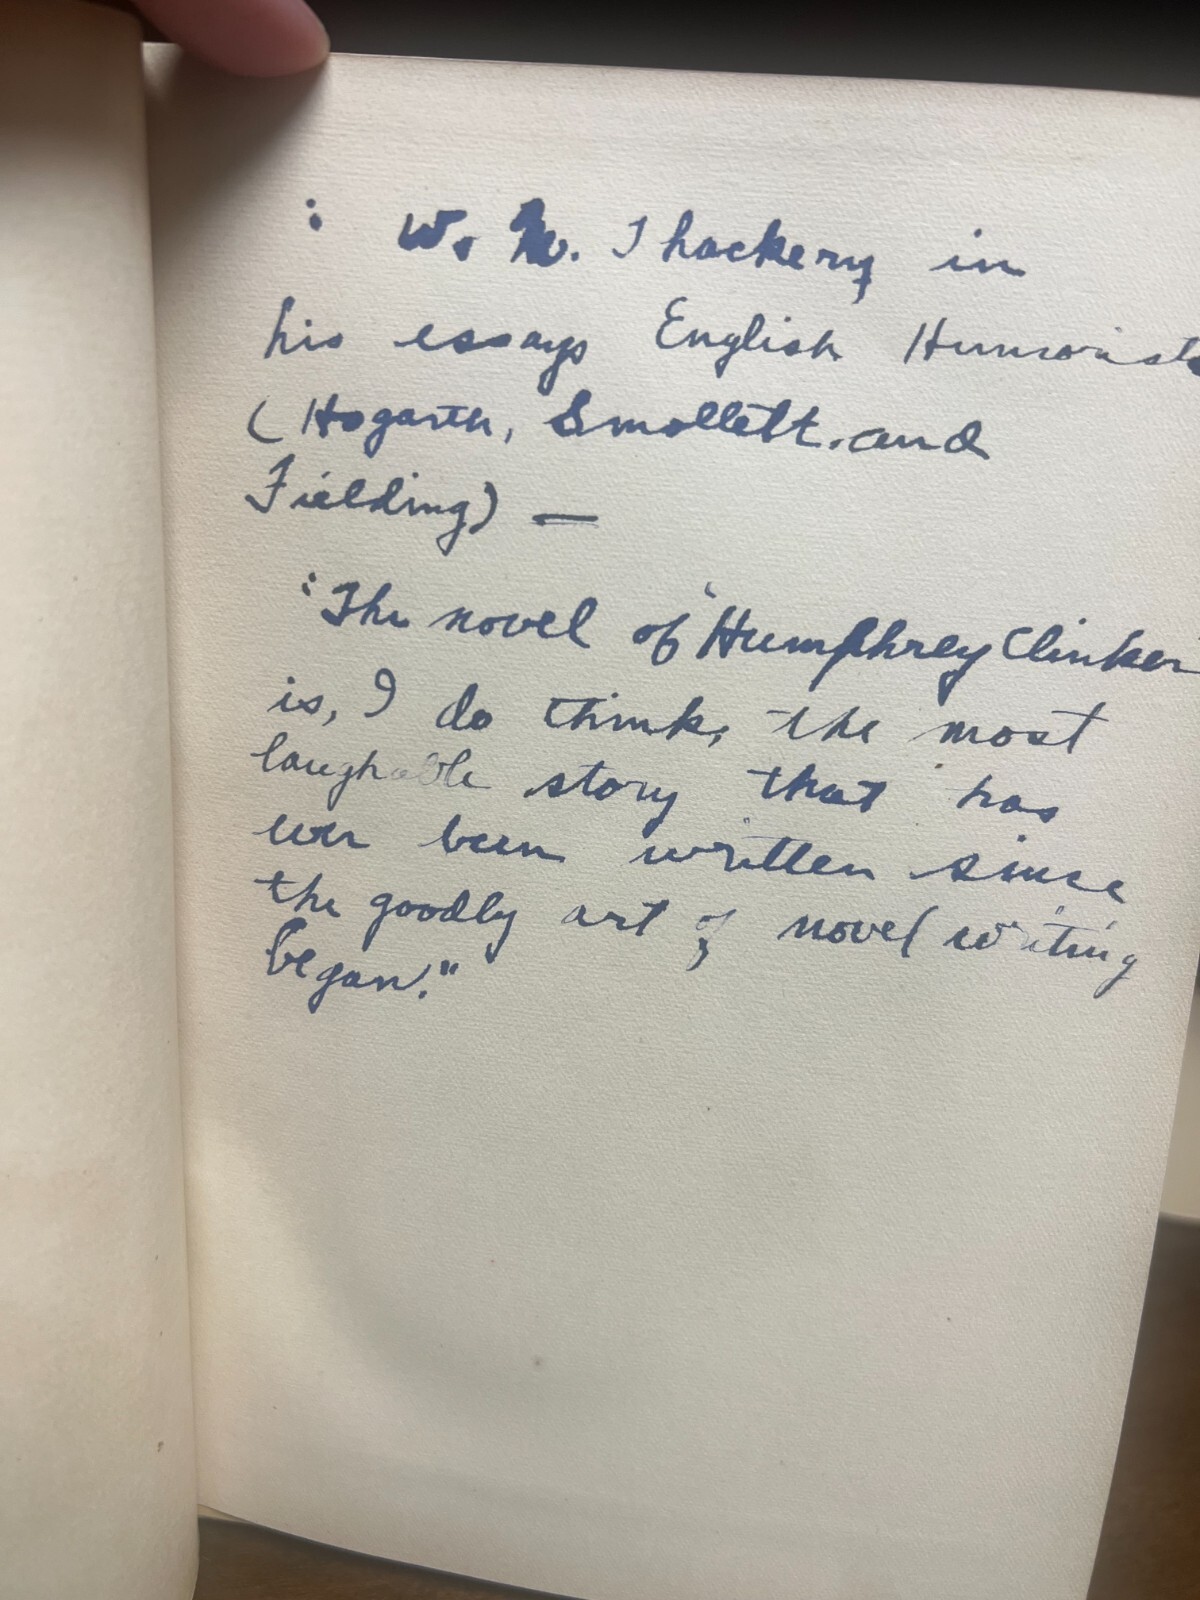 : W. M. Thackery in
his essays English Humorists
(Hogarth, Smollett. and
Fielding) —
"The novel of "Humphrey Clinker
is, I do think, the most
laughable story that has
ever been written since
the goodly art of novel writing
began."